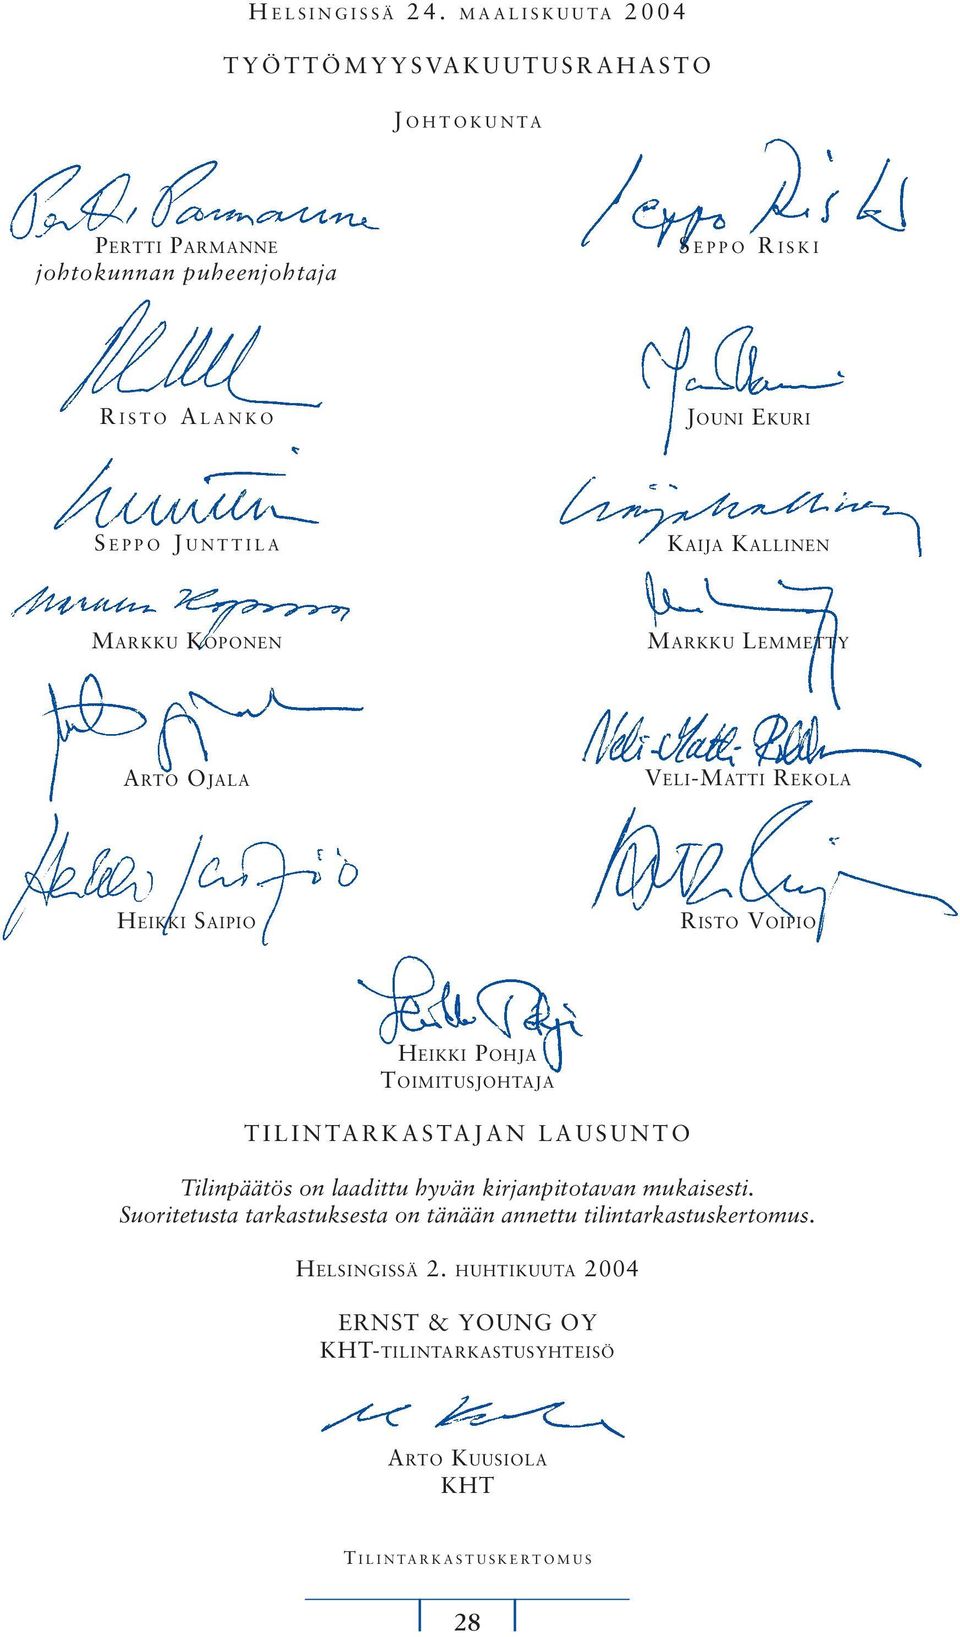 HELSINGISSÄ 24. MAALISKUUTA 2004
TYÖTTÖMYYSVAKUUTUSRAHASTO
JOHTOKUNTA
Pertti Parmanne
Seppo Riski
PERTTI PARMANNE
SEPPO RISKI
johtokunnan puheenjohtaja
RISTO ALANKO
JOUNI EKURI
Kaija Kallinen
SEPPO JUNTTILA
KAIJA KALLINEN
Markku Koponen
MARKKU KOPONEN
MARKKU LEMMETTY
Veli-Matti
ARTO OJALA
VELI-MATTI REKOLA
Heikki
HEIKKI SAIPIO
RISTO VOIPIO
Heikki Pohja
HEIKKI POHJA
TOIMITUSJOHTAJA
TILINTARKASTAJAN LAUSUNTO
Tilinpäätös on laadittu hyvän kirjanpitotavan mukaisesti.
Suoritetusta tarkastuksesta on tänään annettu tilintarkastuskertomus.
HELSINGISSÄ 2. HUHTIKUUTA 2004
ERNST & YOUNG OY
KHT-TILINTARKASTUSYHTEISÖ
ARTO KUUSIOLA
KHT
TILINTARKASTUSKERTOMUS
28